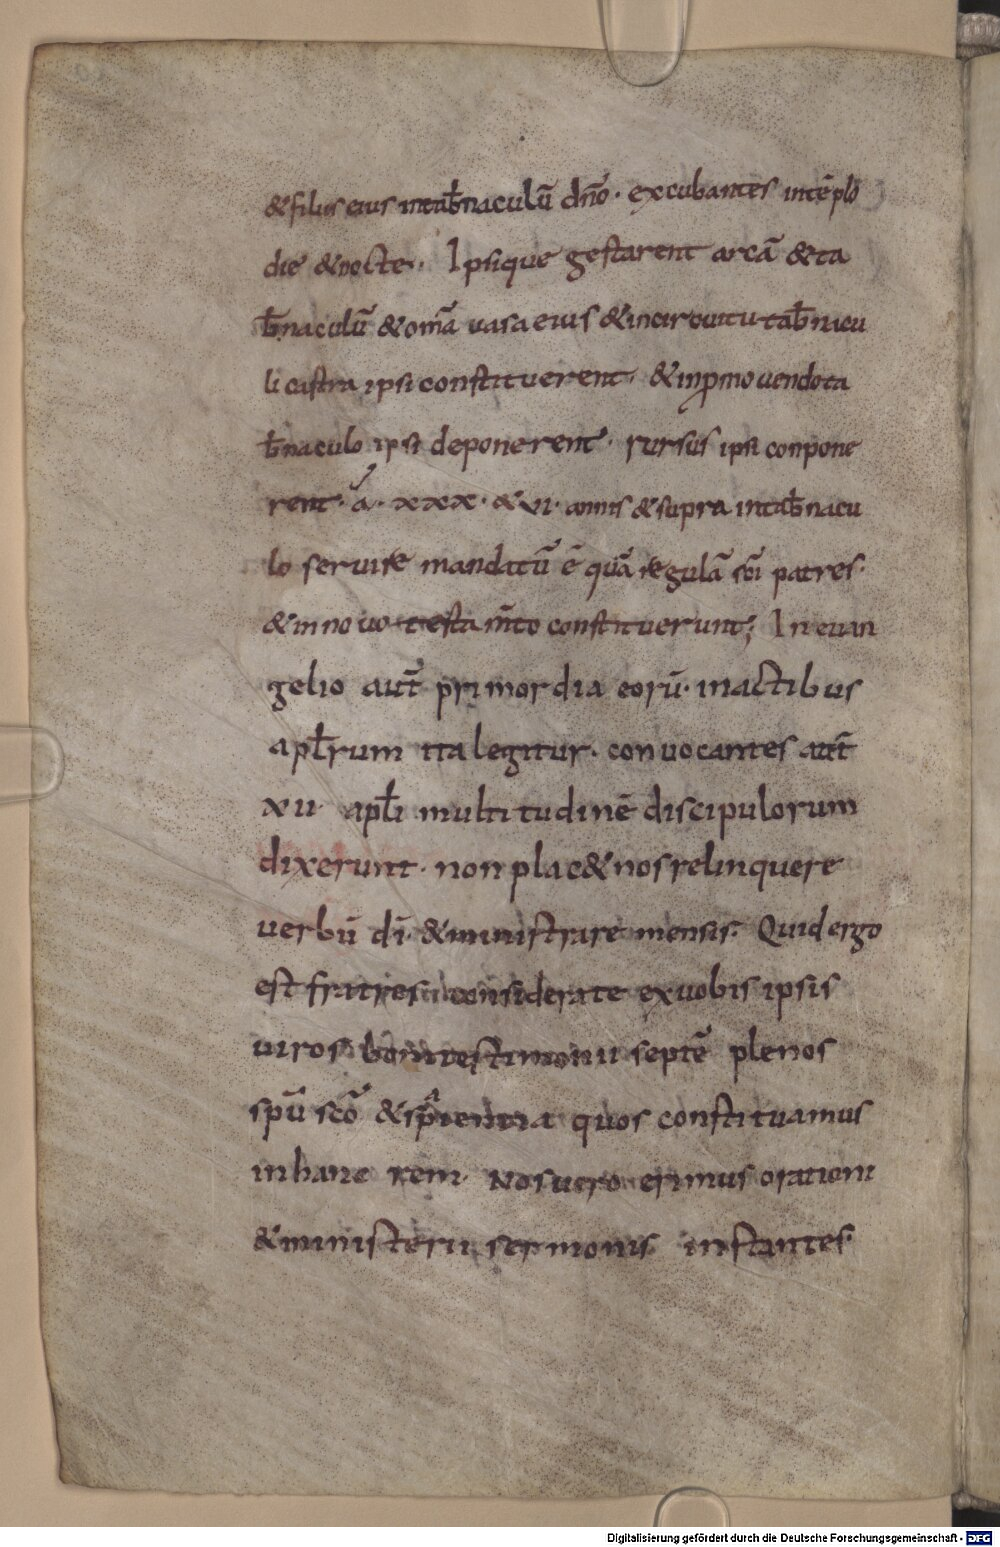 &filiis eius intab̄naculū dn̄o· excubantes intēplo
die &nocte· Ipsique gestarent arcā &ta
b̄naculū &om̄a uasa eius &incircuitu tab̄nacu
li castra ipsi constituerent· &inpmouendo ta
b̄naculo ipsi deponerent· rursus ipsi conpone
rent· á· xxx· &vi· annis &supra intab̄nacu
lo seruire mandatū ē quā regulā sc̄i patres·
&in nouo testam̄to constituerunt; In euan
gelio aut̄ primordia eorū· inactibus
apl̄rum ita legitur· conuocantes aut̄
xii· apl̄i multitudinē discipulorum
dixerunt· non plac& nos relinquere
uerbū dī· &ministrare mensis· Quid ergo
est fratres considerate exuobis ipsis
uiros boni testimonii septē plenos
spū scō &sapientia quos constituamus
in hanc rem· Nos uero erimus orationi
&ministerii sermonis instantes·
Digitalisierung gefördert durch die Deutsche Forschungsgemeinschaft - DFG